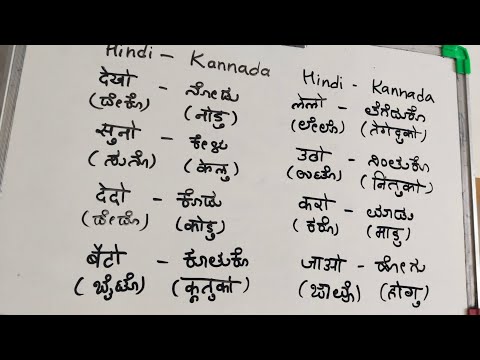 Hindi - Kannada
देखो - ನೋಡು
(ದೇಕೊ) (नोडु)
सुनो - ಕೇಳು
(ಸುನೊ) (केलु)
देदो - ಕೊಡು
(ದೇದೊ) (कोडु)
बैटो - ಕೂತುಕೊ
(ಬೈಟೊ) (कूतुको)
Hindi - Kannada
लेलो - ತೆಗೆದುಕೊ
(ಲೇಲೊ) (तेगेदुको)
उठो - ನಿಂತುಕೊ
(ಉಟೊ) (नितुको)
करो - ಮಾಡು
(ಕರೊ) (माडु)
जाओ - ಹೋಗು
(ಜಾವೊ) (होगु)